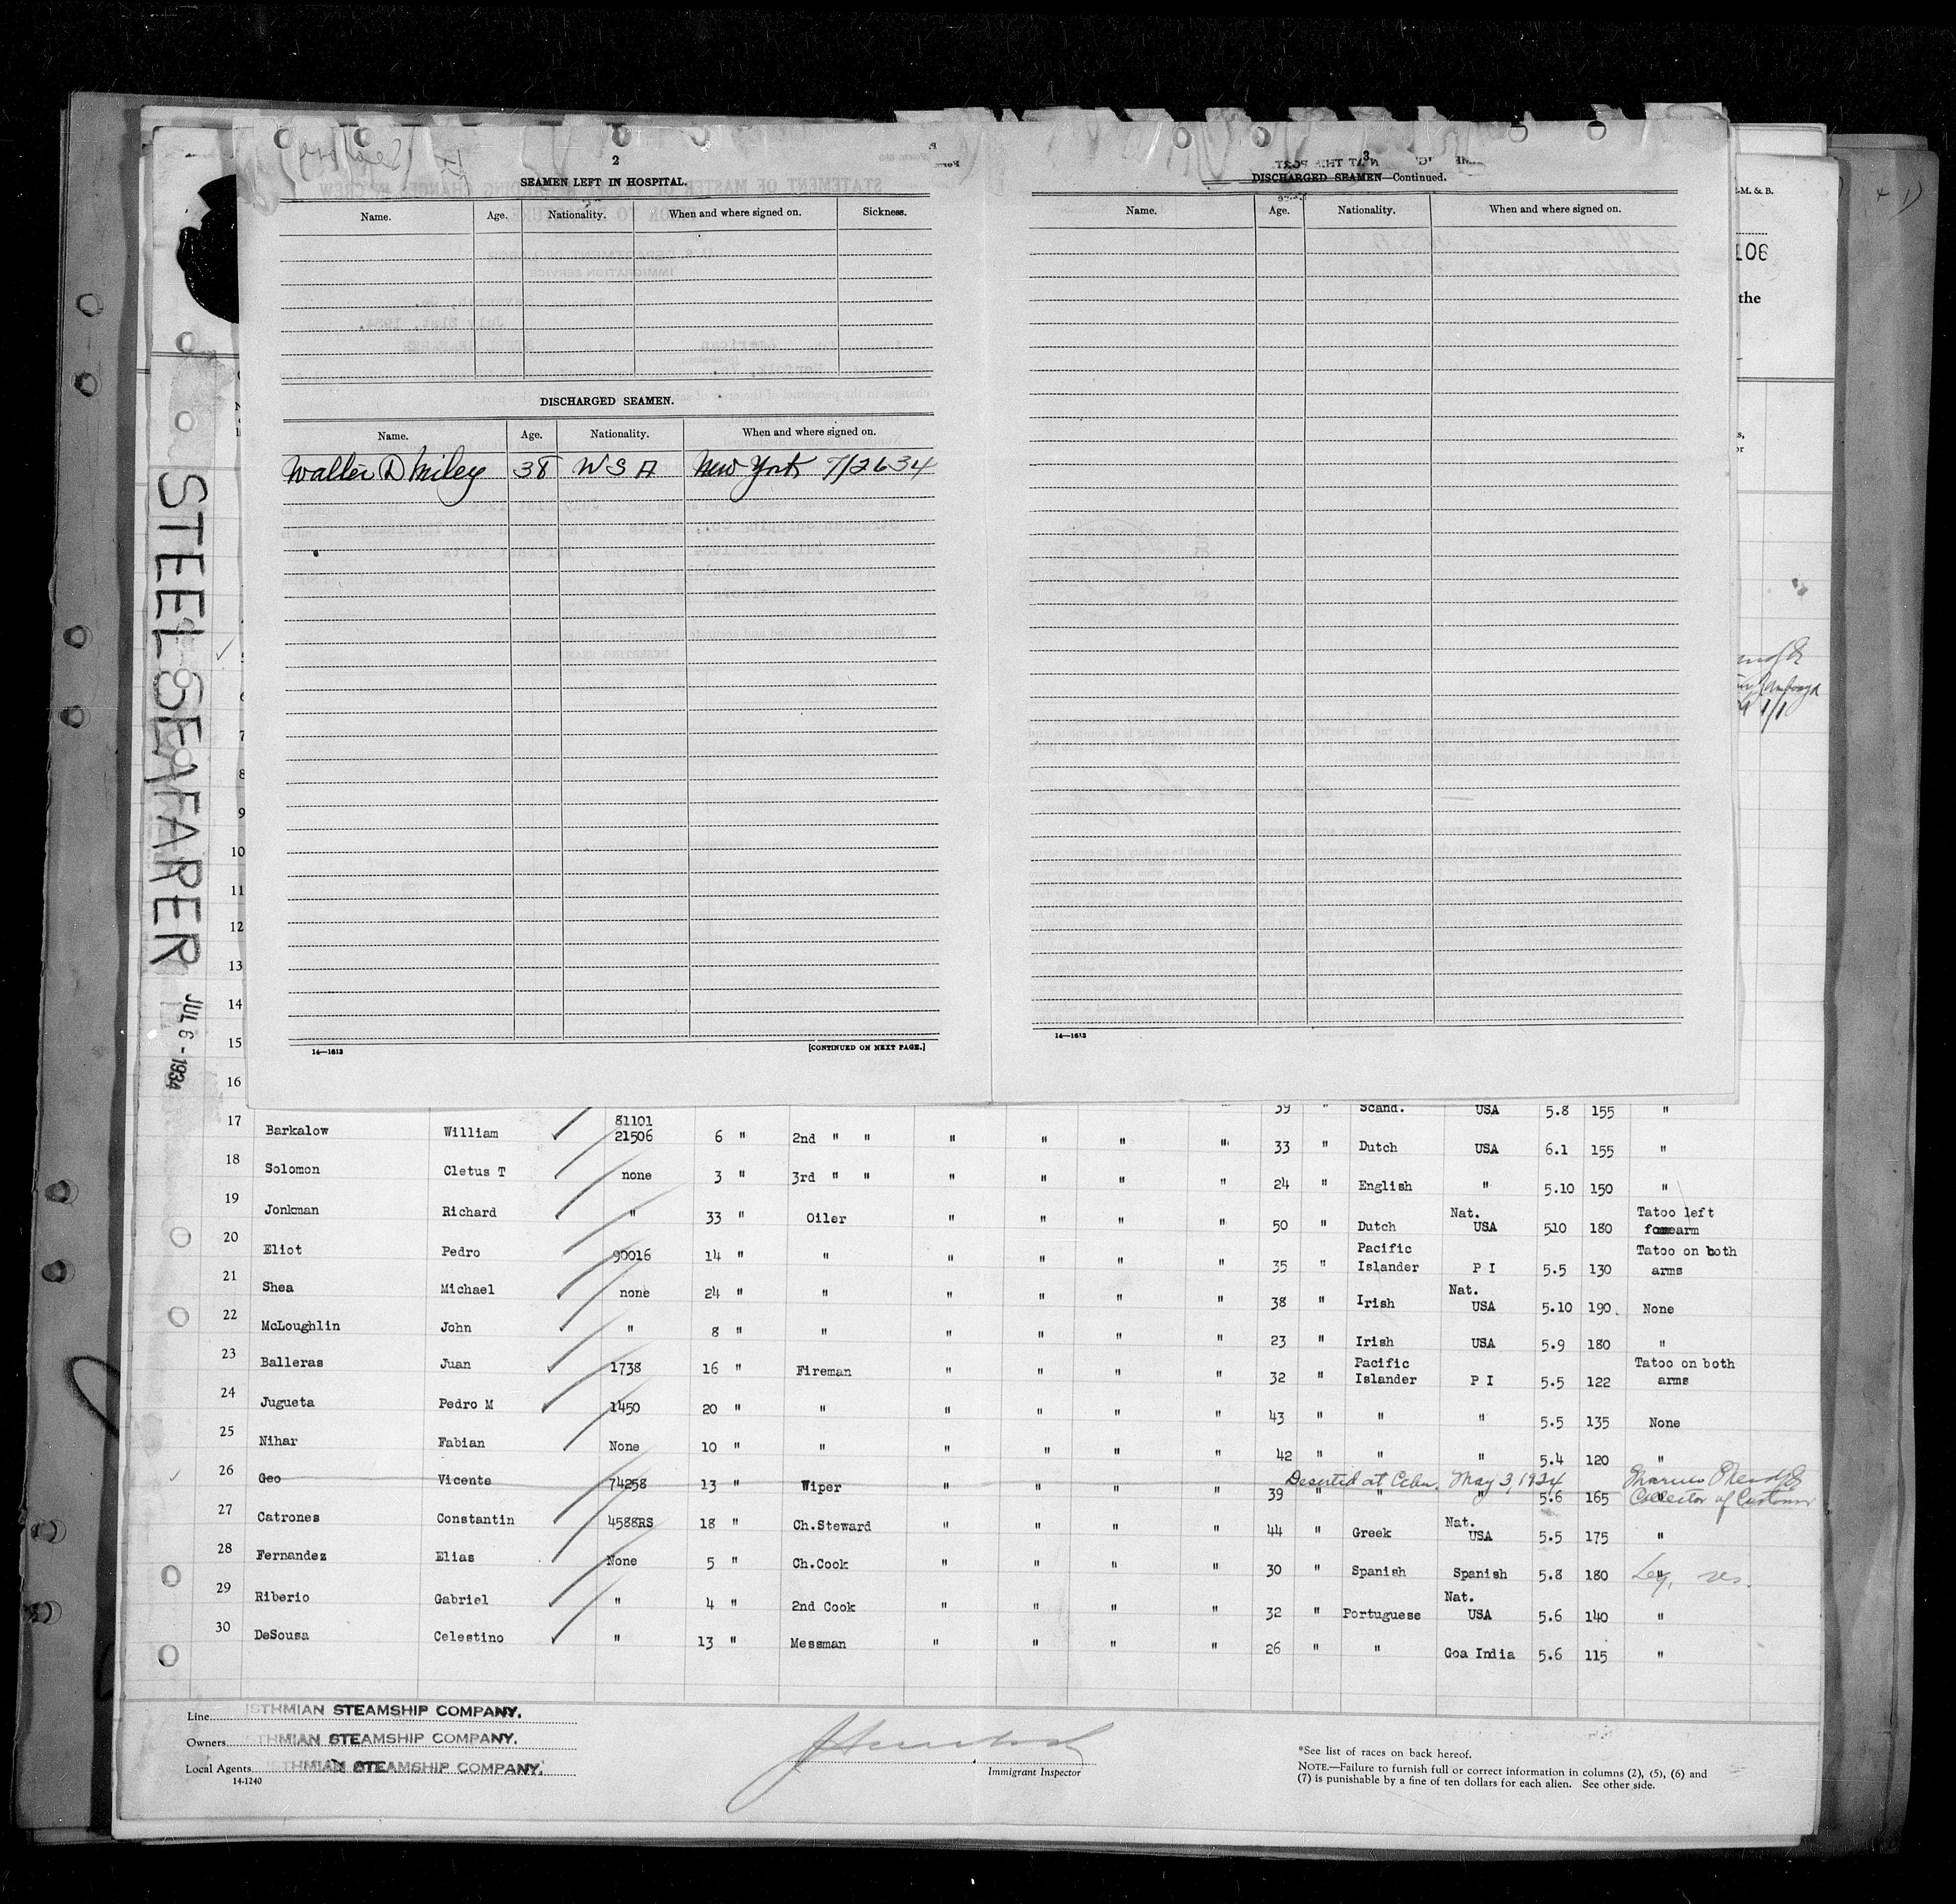 2
SEAMEN LEFT IN HOSPITAL.
Name. Age. Nationality. When and where signed on. Sickness.
DISCHARGED SEAMEN.
Name. Age. Nationality. When and where signed on.
Walter D Miley 38 U S A New York 7/26 34
14—1613 [CONTINUED ON NEXT PAGE.]
3
DISCHARGED SEAMEN—Continued.
Name. Age. Nationality. When and where signed on.
14—1613
-M. & B.
106
the
STEEL SEAFARER JUL 6 - 1934
7
8
9
10
11
12
13
14
15
16
39 " Scand. USA 5.8 155 "
17 Barkalow William 81101 21506 6 " 2nd " " " " " " 33 " Dutch USA 6.1 155 "
18 Solomon Cletus T none 3 " 3rd " " " " " " 24 " English " 5.10 150 "
19 Jonkman Richard " 33 " Oiler " " " " 50 " Dutch Nat. USA 510 180 Tatoo left forearm
20 Eliot Pedro 90016 14 " " " " " " 35 " Pacific Islander P I 5.5 130 Tatoo on both arms
21 Shea Michael none 24 " " " " " " 38 " Irish Nat. USA 5.10 190. None
22 McLoughlin John " 8 " " " " " " 23 " Irish USA 5.9 180 "
23 Balleras Juan 1738 16 " Fireman " " " " 32 " Pacific Islander P I 5.5 122 Tatoo on both arms
24 Jugueta Pedro M 1450 20 " " " " " " 43 " " " 5.5 135 None
25 Nihar Fabian None 10 " " " " " " 42 " " " 5.4 120 "
Deserted at Cebu, May 3, 1934
26 Geo Vicente 74258 13 " Wiper " " " " 39 " " " 5.6 165 " Collector of Customs
27 Catrones Constantin 4588RS 18 " Ch.Steward " " " " 44 " Greek Nat. USA 5.5 175 "
28 Fernandez Elias None 5 " Ch.Cook " " " " 30 " Spanish Spanish 5.8 180 " Leg. res.
29 Riberio Gabriel " 4 " 2nd Cook " " " " 32 " Portuguese Nat. USA 5.6 140 "
30 DeSousa Celestino " 13 " Messman " " " " 26 " " Goa India 5.6 115 "
Line ISTHMIAN STEAMSHIP COMPANY.
Owners ISTHMIAN STEAMSHIP COMPANY.
Local Agents ISTHMIAN STEAMSHIP COMPANY.
14-1240
Immigrant Inspector
*See list of races on back hereof.
NOTE.—Failure to furnish full or correct information in columns (2), (5), (6) and
(7) is punishable by a fine of ten dollars for each alien. See other side.